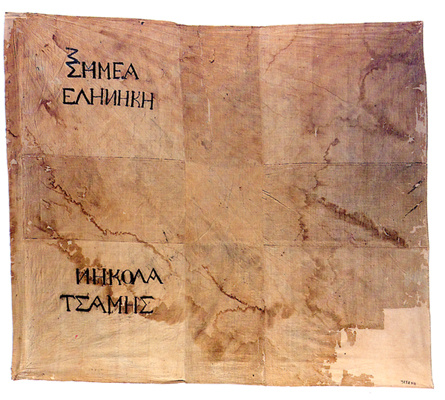 ΣΗΜΕΑ
ΕΛΗΝΗΚΗ
ΝΗΚΟΛΑ
ΤΣΑΜΗΣ